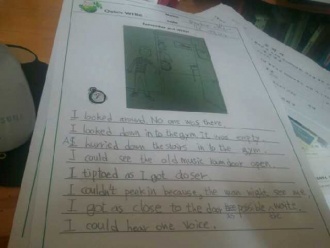 Creative Writing
I looked around. No one was there.
I looked down into the gym. It was empty.
I hurried down the stairs in to the gym
I could see the old music room door open
I tiptoed as I got closer
I couldn't peak in because, the man would see me
I got as close to the door as
I could hear one voice.